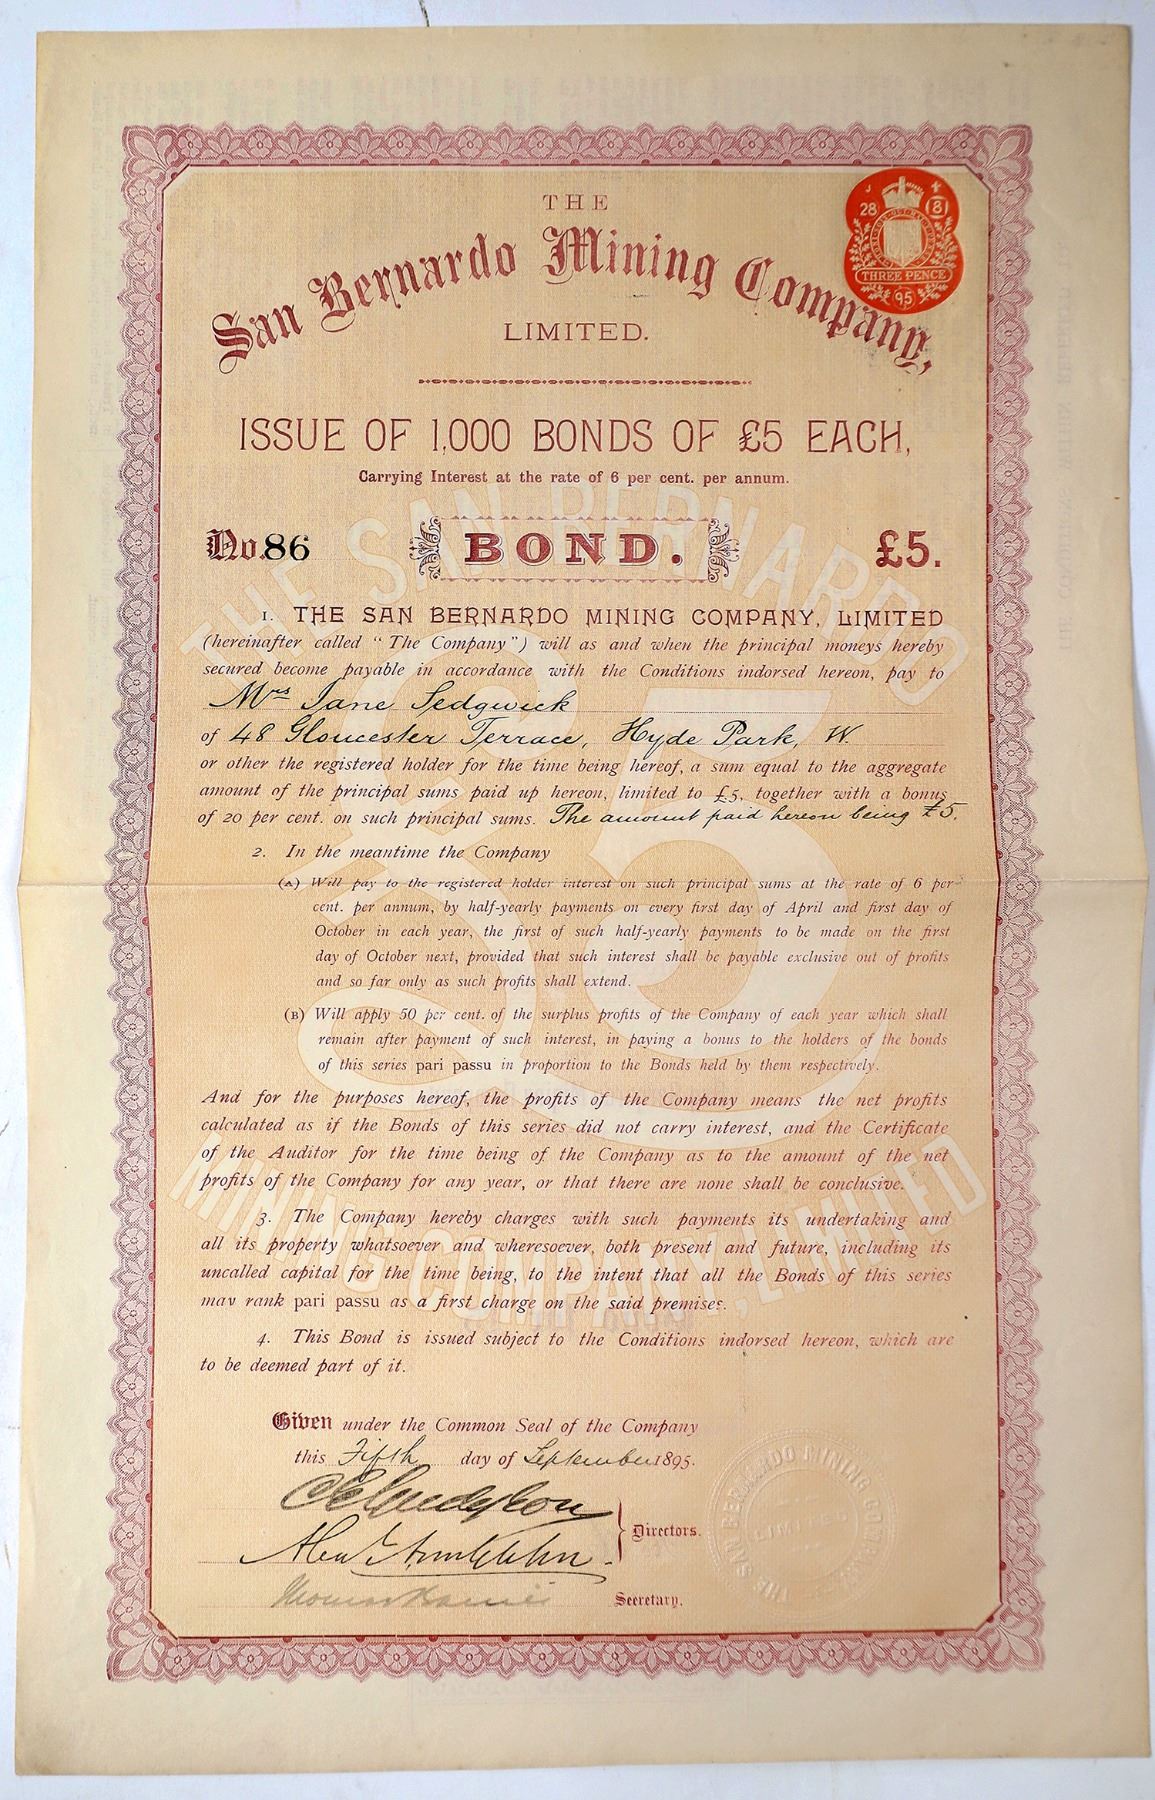 THE
San Bernardo Mining Company,
LIMITED.
J 4
28 8
THREE PENCE
95
ISSUE OF 1,000 BONDS OF £5 EACH,
Carrying Interest at the rate of 6 per cent. per annum.
No. 86 BOND. £5.
1. THE SAN BERNARDO MINING COMPANY, LIMITED
(hereinafter called "The Company") will as and when the principal moneys hereby
secured become payable in accordance with the Conditions indorsed hereon, pay to
Mrs Jane Sedgwick
of 48 Gloucester Terrace, Hyde Park, W.
or other the registered holder for the time being hereof, a sum equal to the aggregate
amount of the principal sums paid up hereon, limited to £5, together with a bonus
of 20 per cent. on such principal sums. The amount paid hereon being £5.
2. In the meantime the Company
(A) Will pay to the registered holder interest on such principal sums at the rate of 6 per
cent. per annum, by half-yearly payments on every first day of April and first day of
October in each year, the first of such half-yearly payments to be made on the first
day of October next, provided that such interest shall be payable exclusive out of profits
and so far only as such profits shall extend.
(B) Will apply 50 per cent. of the surplus profits of the Company of each year which shall
remain after payment of such interest, in paying a bonus to the holders of the bonds
of this series pari passu in proportion to the Bonds held by them respectively.
And for the purposes hereof, the profits of the Company means the net profits
calculated as if the Bonds of this series did not carry interest, and the Certificate
of the Auditor for the time being of the Company as to the amount of the net
profits of the Company for any year, or that there are none shall be conclusive.
3. The Company hereby charges with such payments its undertaking and
all its property whatsoever and wheresoever, both present and future, including its
uncalled capital for the time being, to the intent that all the Bonds of this series
may rank pari passu as a first charge on the said premises.
4. This Bond is issued subject to the Conditions indorsed hereon, which are
to be deemed part of it.
Given under the Common Seal of the Company
this Fifth day of September 1895.
Directors.
Secretary.
THE SAN BERNARDO
£5
MINING COMPANY, LIMITED
THE SAN BERNARDO MINING COMPANY
LIMITED